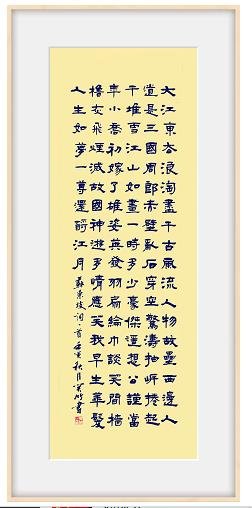 大江東去浪淘盡千古風流人物故壘西邊人
道是三國周郎赤壁亂石穿空驚濤拍岸捲起
千堆雪江山如畫一時多少豪傑遙想公謹當
年小喬初嫁了雄姿英發羽扇綸巾談笑間檣
櫓灰飛煙滅故國神遊多情應笑我早生華髮
人生如夢一尊還酹江月 蘇東坡詞一首 壬寅秋月 書